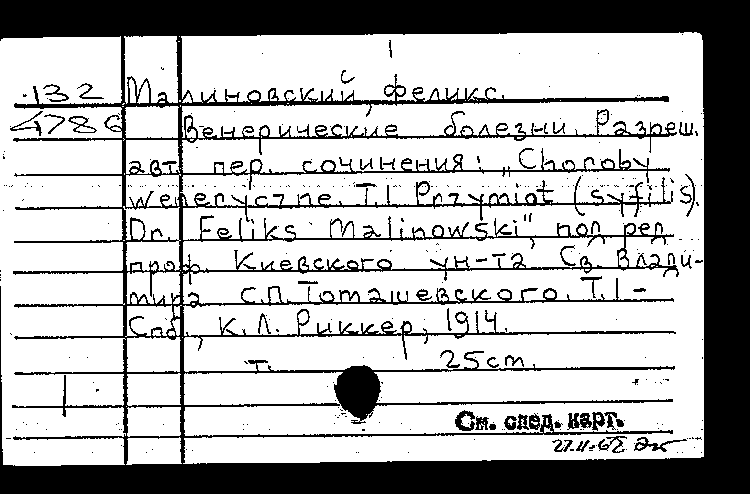 132 Малиновский, Феликс.
4786 Венерические болезни. Разреш.
авт. пер. сочинения: „Choroby
weneryczne. T.I. Przymiot (syfilis).
Dr. Feliks Malinowski", под ред.
проф. Киевского ун-та Св. Влади-
мира С.П. Томашевского. Т. I -
Спб., К. Л. Риккер, 1914.
т. 25cm.
См. след. карт.